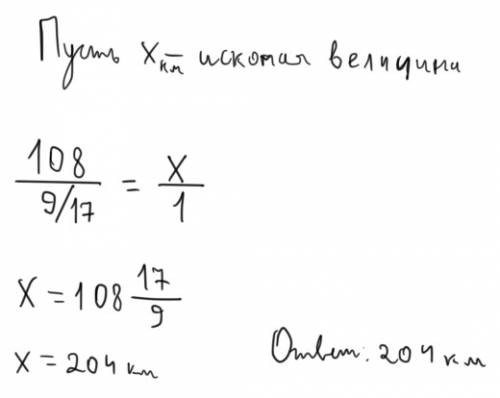 Пусть x км — искомая величина
108 / (9/17) = x / 1
x = 108 17/9
x = 204 км
Ответ: 204 км